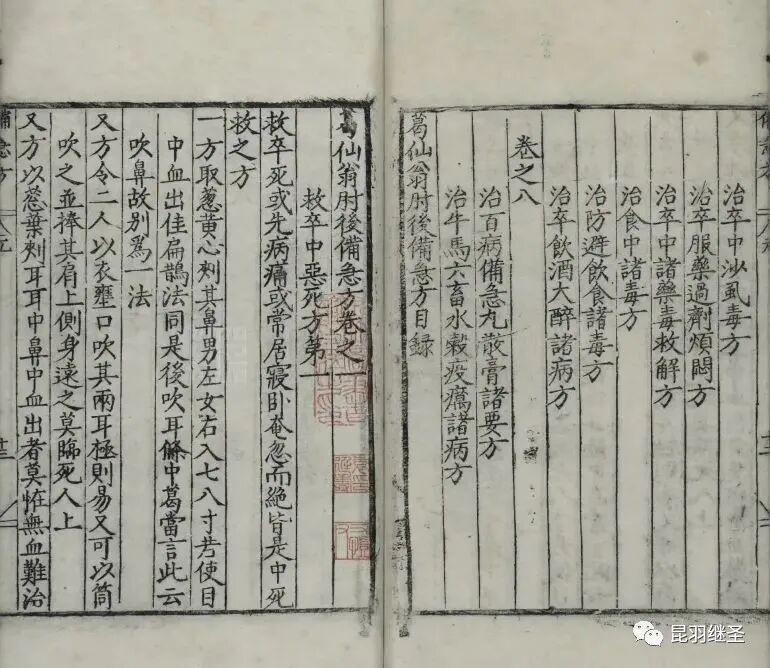 治卒中沙虱毒方
治卒服藥過劑煩悶方
治卒中諸藥毒救解方
治食中諸毒方
治防避飲食諸毒方
治卒飲酒大醉諸病方
卷之八
治百病備急丸散膏諸要方
治牛馬六畜水穀疫癘諸病方
葛仙翁肘後備急方目録
葛仙翁肘後備急方卷之一
救卒中惡死方第一
救卒死或先病痛或常居寢卧奄忽而絶皆是中死
救之方
一方取葱黄心刺其鼻男左女右入七八寸若使目
中血出佳扁鵲法同是後吹耳條中葛當言此云
吹鼻故别為一法
又方令二人以衣壅口吹其兩耳極則易又可以筒
吹之並捧其肩上側身遠之莫臨死人上
又方以葱葉刺耳耳中鼻中血出者莫恠無血難治
昆羽继圣